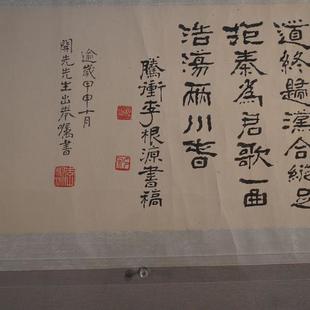 道終歸漢合縱足
拒秦為君歌一曲
浩蕩兩川春
騰衝李根源書稿
逾歲甲申十月
開先先生出卷屬書